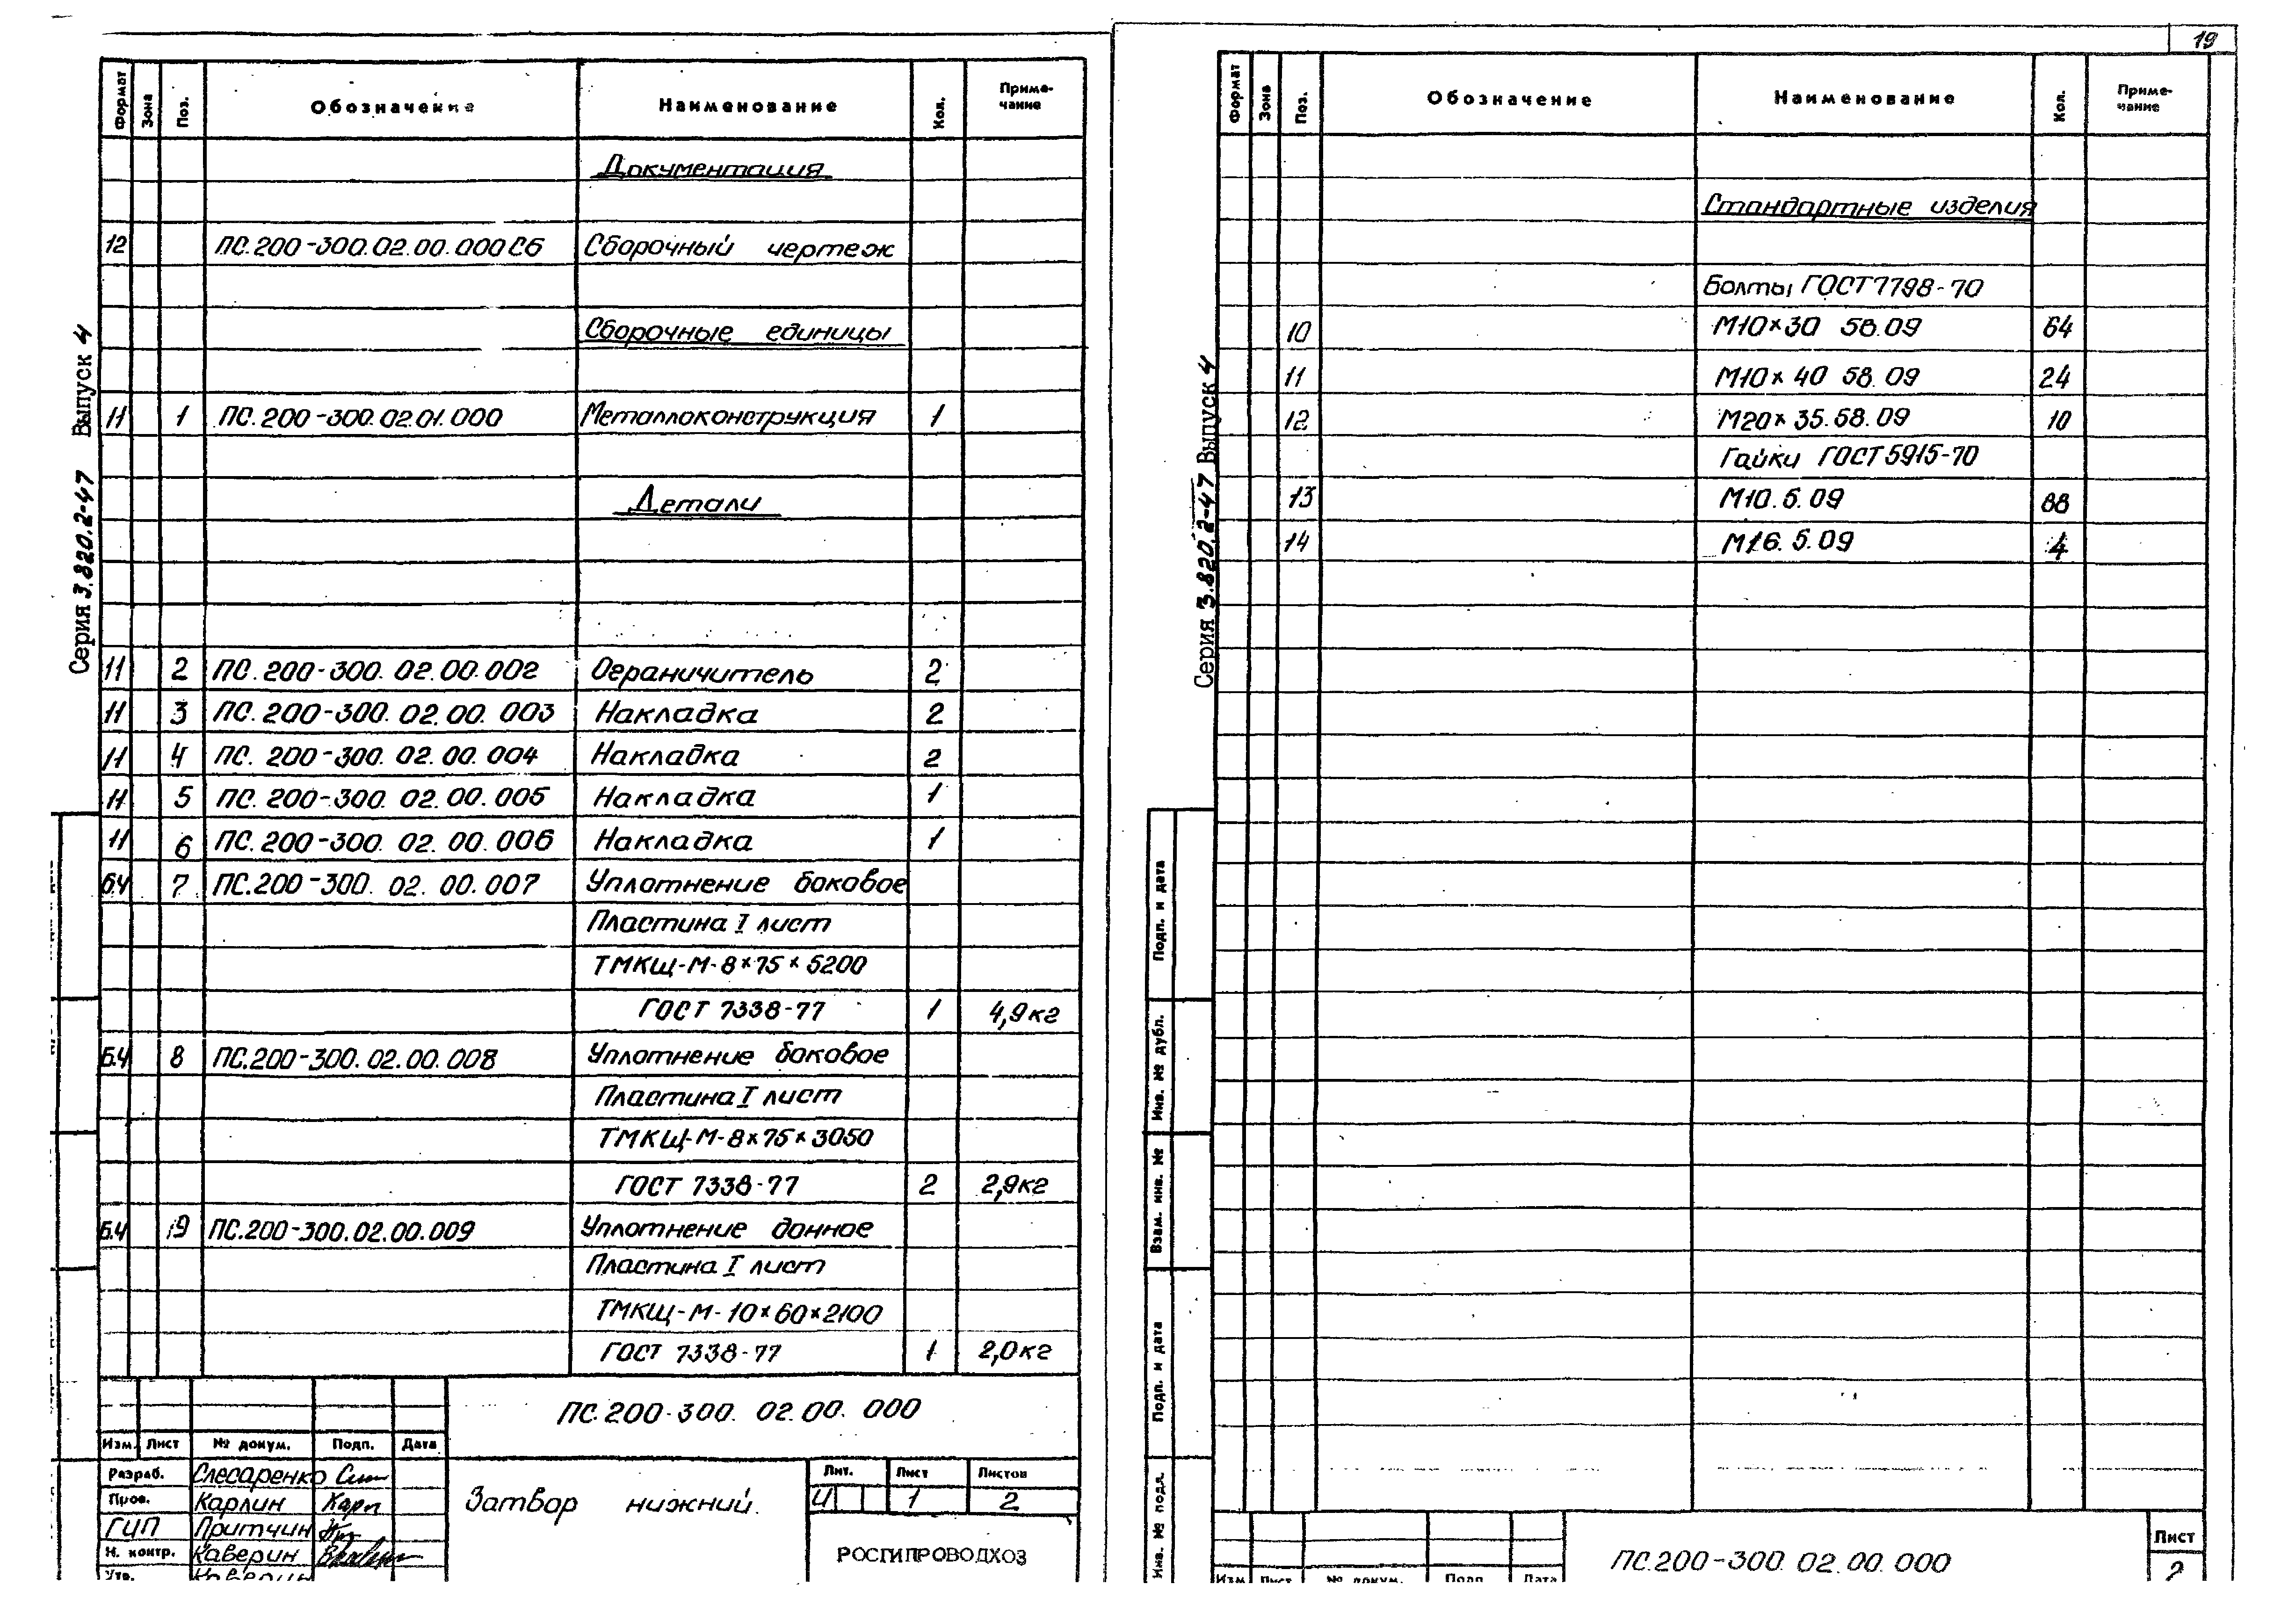 Формат Зона Поз. Обозначение Наименование Кол. Приме-
чание
Документация
12 ПС.200-300.02.00.000СБ Сборочный чертеж
Сборочные единицы
11 1 ПС.200-300.02.01.000 Металлоконструкция 1
Детали
11 2 ПС.200-300.02.00.002 Ограничитель 2
11 3 ПС.200-300.02.00.003 Накладка 2
11 4 ПС.200-300.02.00.004 Накладка 2
11 5 ПС.200-300.02.00.005 Накладка 1
11 6 ПС.200-300.02.00.006 Накладка 1
Б.Ч 7 ПС.200-300.02.00.007 Уплотнение боковое
Пластина I лист
ТМКЩ-М-8×75×5200
ГОСТ 7338-77 1 4,9кг
Б.Ч 8 ПС.200-300.02.00.008 Уплотнение боковое
Пластина I лист
ТМКЩ-М-8×75×3050
ГОСТ 7338-77 2 2,9кг
Б.Ч 9 ПС.200-300.02.00.009 Уплотнение донное
Пластина I лист
ТМКЩ-М-10×60×2100
ГОСТ 7338-77 1 2,0кг
Серия 3.820.2-47 Выпуск 4
ПС.200-300.02.00.000
Изм. Лист № докум. Подп. Дата
Разраб. Слесаренко
Пров. Карлин Карл
ГИП Притчин
Н. контр. Каверин
Утв. Каверин
Затвор нижний.
Лит. Лист Листов
И 1 2
РОСГИПРОВОДХОЗ
19
Формат Зона Поз. Обозначение Наименование Кол. Приме-
чание
Стандартные изделия
Болты ГОСТ 7798-70
10 М10×30 58.09 64
11 М10×40 58.09 24
12 М20×35.58.09 10
Гайки ГОСТ 5915-70
13 М10.5.09 88
14 М16.5.09 4
Серия 3.820.2-47 Выпуск 4
Подп. и дата
Инв. № дубл.
Взам. инв. №
Подп. и дата
Инв. № подл.
Изм Лист № докум. Подп Дата
ПС.200-300.02.00.000
Лист
2